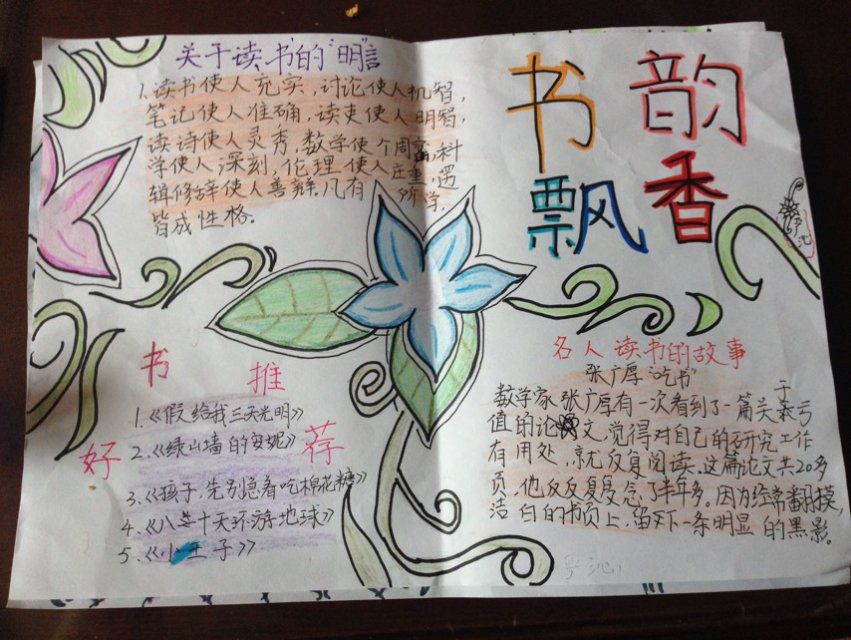 关于读书的"明言
1.读书使人充实，讨论使人机智，
笔记使人准确，读吏使人明智，
读诗使人灵秀，数学使个周密，科
学使人深刻，伦理使人庄重，逻
辑修辞使人善辩。凡有所学，
皆成性格。
书韵
飘香
好书推荐
1.《假给我三天光明》
2.《绿山墙的安妮》
3.《孩子，先别急着吃棉花糖》
4.《八十天环游地球》
5.《小王子》
名人读书的故事
张广厚"吃书"
数学家张广厚有一次看到了一篇关于亏
值的论文，觉得对自己的研究工作
有用处，就反复阅读。这篇论文共20多
页，他反反复复念了半年多。因为经常翻摸，
洁白的书页上，留下一条明显的黑影。